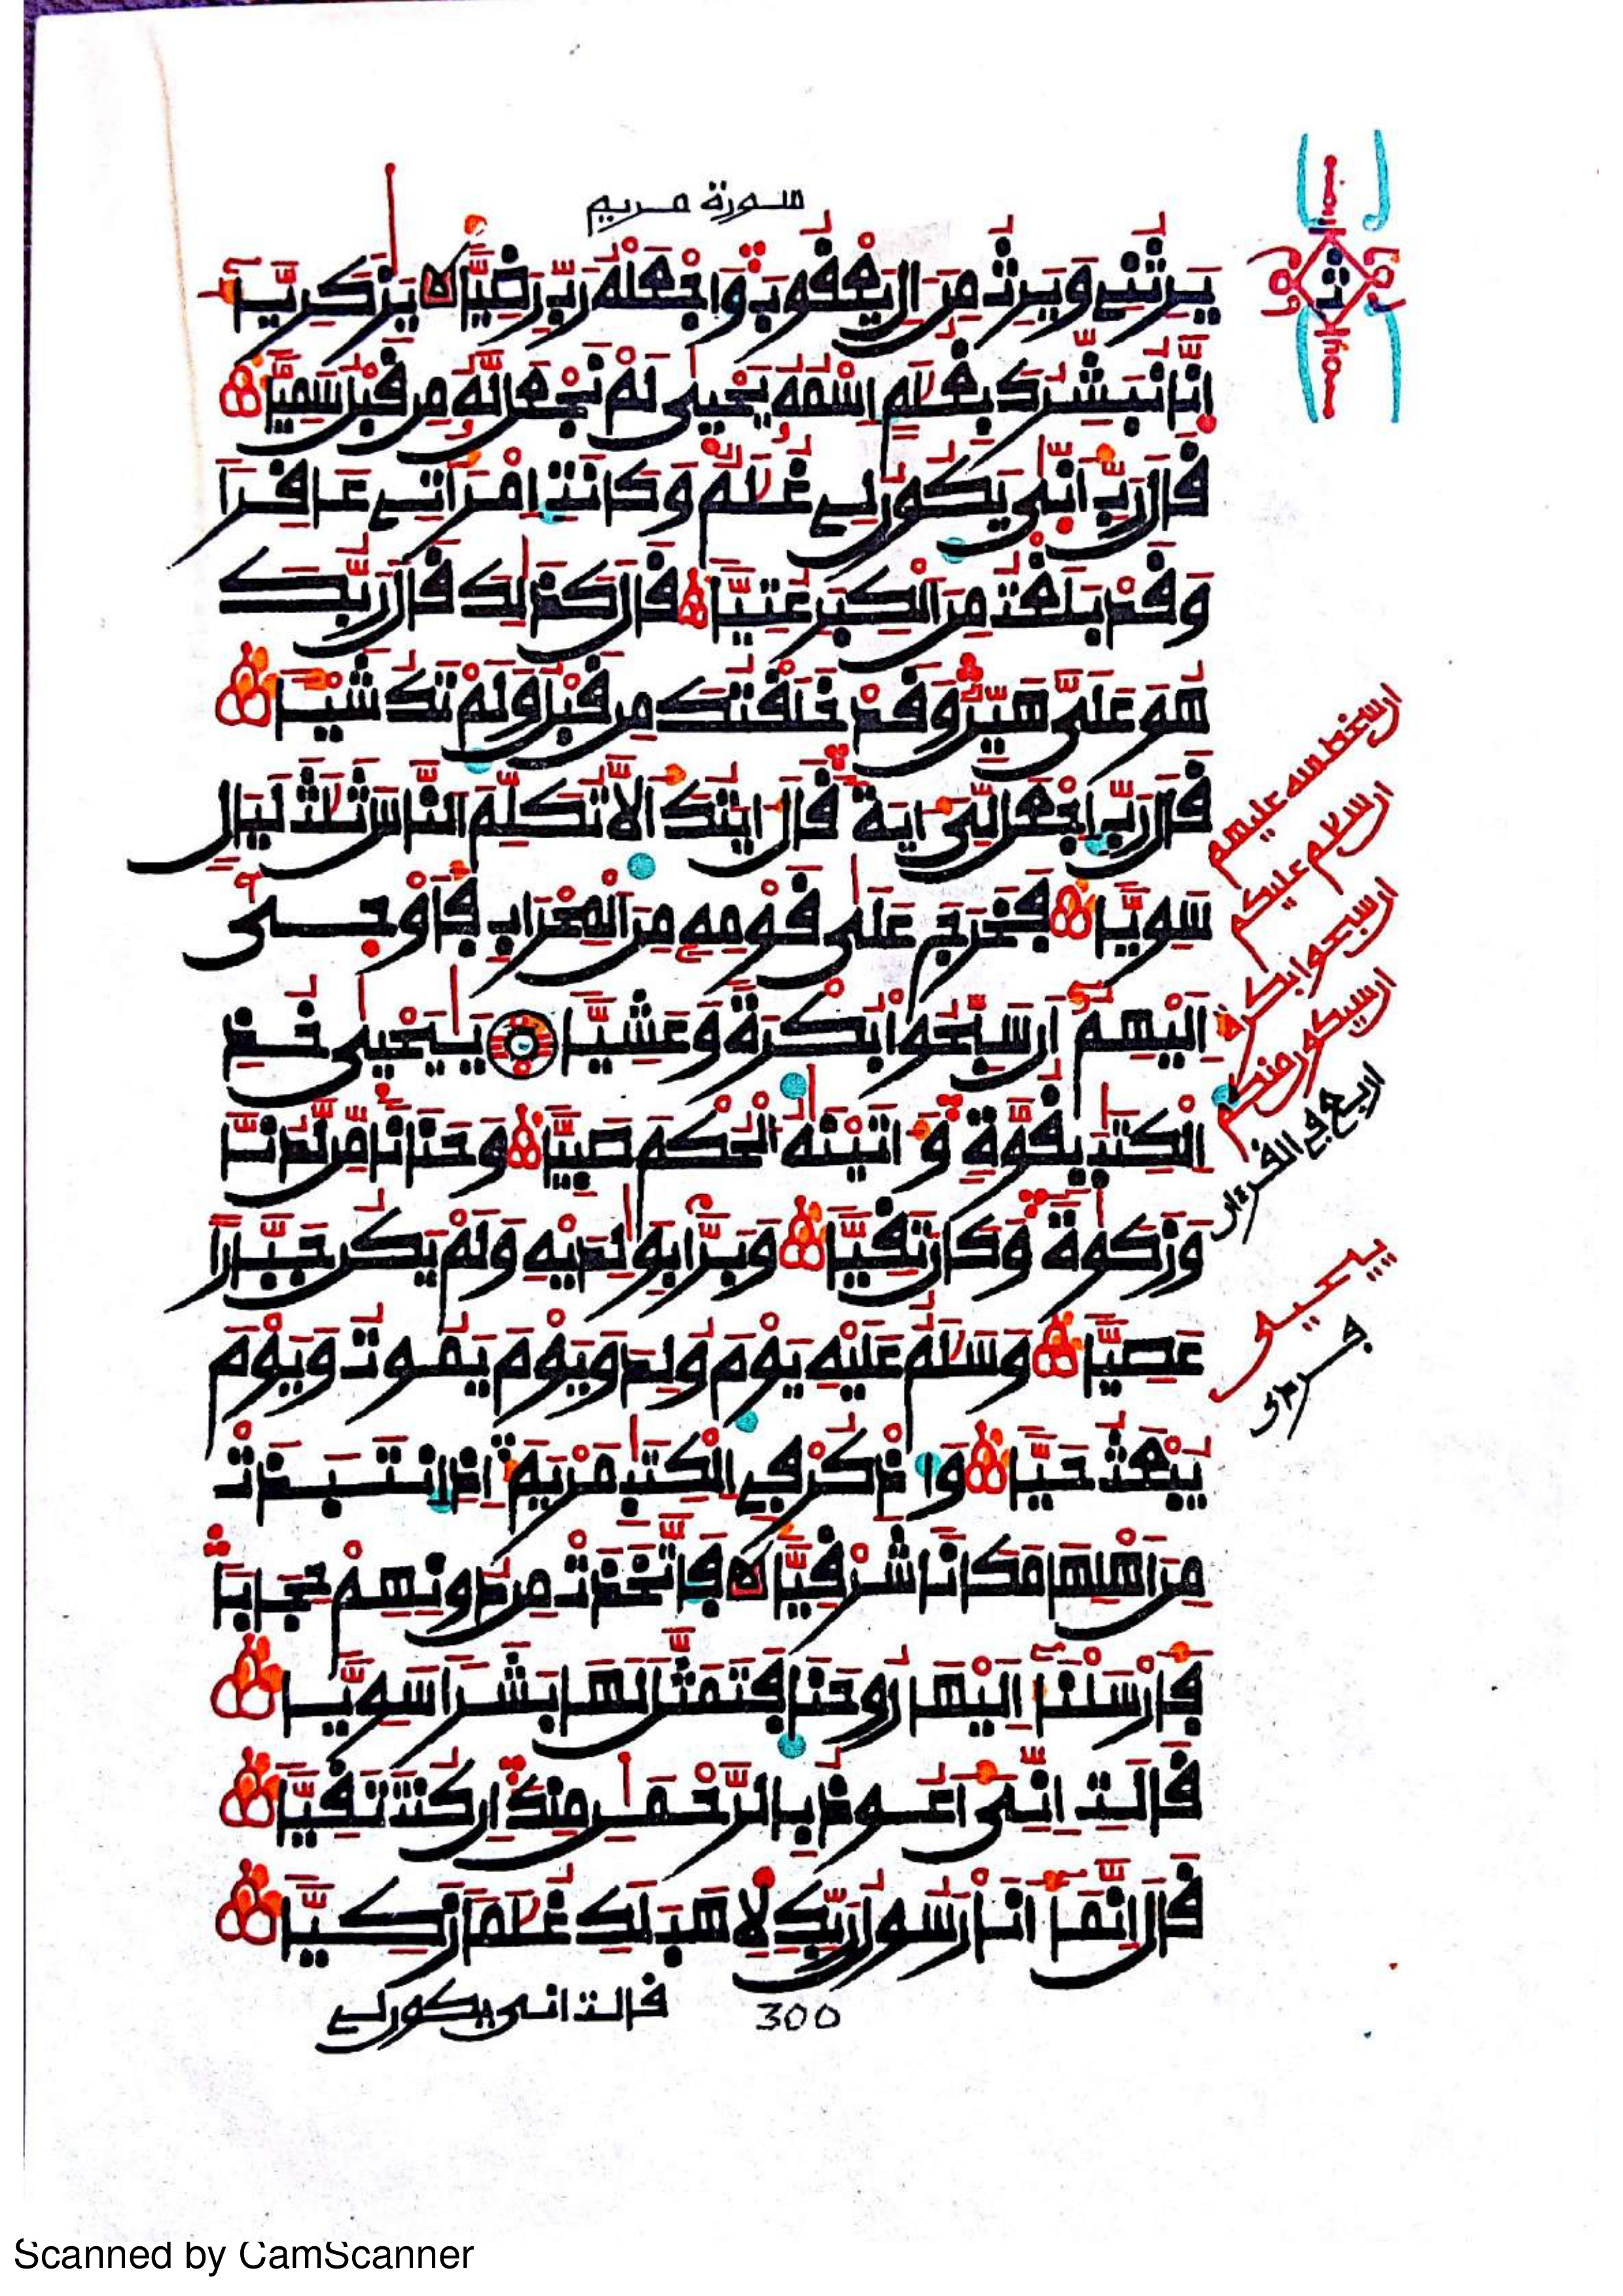 سورة مريم
يَرِثُنِے وَيَرِثُ مِنَ اٰلِ يَعْقُوبَ وَاجْعَلْهُ رَبِّ رَضِيّاً يَزَكَرِيَّآ
إِنَّا نُبَشِّرُكَ بِغُلَمٍ اِسْمُهُ يَحْيىٰ لَمْ نَجْعَل لَّهُ مِن قَبْلُ سَمِيّاً
قَالَ رَبِّ أَنّىٰ يَكُونُ لِے غُلَمٌ وَكَانَتِ اِمْرَأَتِے عَاقِراً
وَقَدْ بَلَغْتُ مِنَ الْكِبَرِ عُتِيّاً قَالَ كَذَٰلِكَ قَالَ رَبُّكَ
هُوَ عَلَىَّ هَيِّنٌ وَقَدْ خَلَقْتُكَ مِن قَبْلُ وَلَمْ تَكُ شَيْـاً
قَالَ رَبِّ اِجْعَل لِّىَ ءَايَةً قَالَ ءَايَتُكَ أَلَّا تُكَلِّمَ النَّاسَ ثَلَثَ لَيَالٍ
سَوِيّاً فَخَرَجَ عَلىٰ قَوْمِهِ مِنَ الْمِحْرَابِ فَأَوْحىٰ
إِلَيْهِمُ أَن سَبِّحُوا بُكْرَةً وَعَشِيّاً يَٰيَحْيىٰ خُذِ
اِلْكِتَٰبَ بِقُوَّةٍ وَءَاتَيْنَٰهُ الْحُكْمَ صَبِيّاً وَحَنَاناً مِّن لَّدُنَّا
وَزَكَوٰةً وَكَانَ تَقِيّاً وَبَرّاً بِوَٰلِدَيْهِ وَلَمْ يَكُن جَبَّاراً
عَصِيّاً وَسَلَمٌ عَلَيْهِ يَوْمَ وُلِدَ وَيَوْمَ يَمُوتُ وَيَوْمَ
يُبْعَثُ حَيّاً وَاذْكُرْ فِے الْكِتَٰبِ مَرْيَمَ إِذِ اِنتَبَذَتْ
مِنَ اَهْلِهَا مَكَاناً شَرْقِيّاً فَاتَّخَذَتْ مِن دُونِهِمْ حِجَاباً
فَأَرْسَلْنَآ إِلَيْهَا رُوحَنَا فَتَمَثَّلَ لَهَا بَشَراً سَوِيّاً
قَالَتِ اِنِّىَ أَعُوذُ بِالرَّحْمَٰنِ مِنكَ إِن كُنتَ تَقِيّاً
قَالَ إِنَّمَآ أَنَا رَسُولُ رَبِّكِ لِأَهَبَ لَكِ غُلَماً زَكِيّاً
300
قالت انى يكون لے
ان سخط الله عليهم
ان سلم عليكم
ان سبحوا بكرة
ان سيكون منكم
اربع في القرءان
يحيى